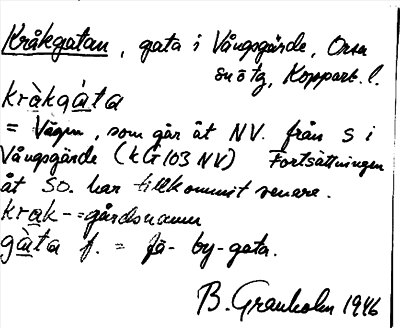 Kråkgatan, gata i Vångsgärde, Orsa
snõtg, Kopparb. l.
kràkgàta
= Vägen, som går åt NV. från S i
Vångsgärde (kG103 NV) Fortsättningen
åt SO. har tillkommit senare.
krak- = gårdsnamn
gàta f. = fä- by-gata.
B. Granholm 1946